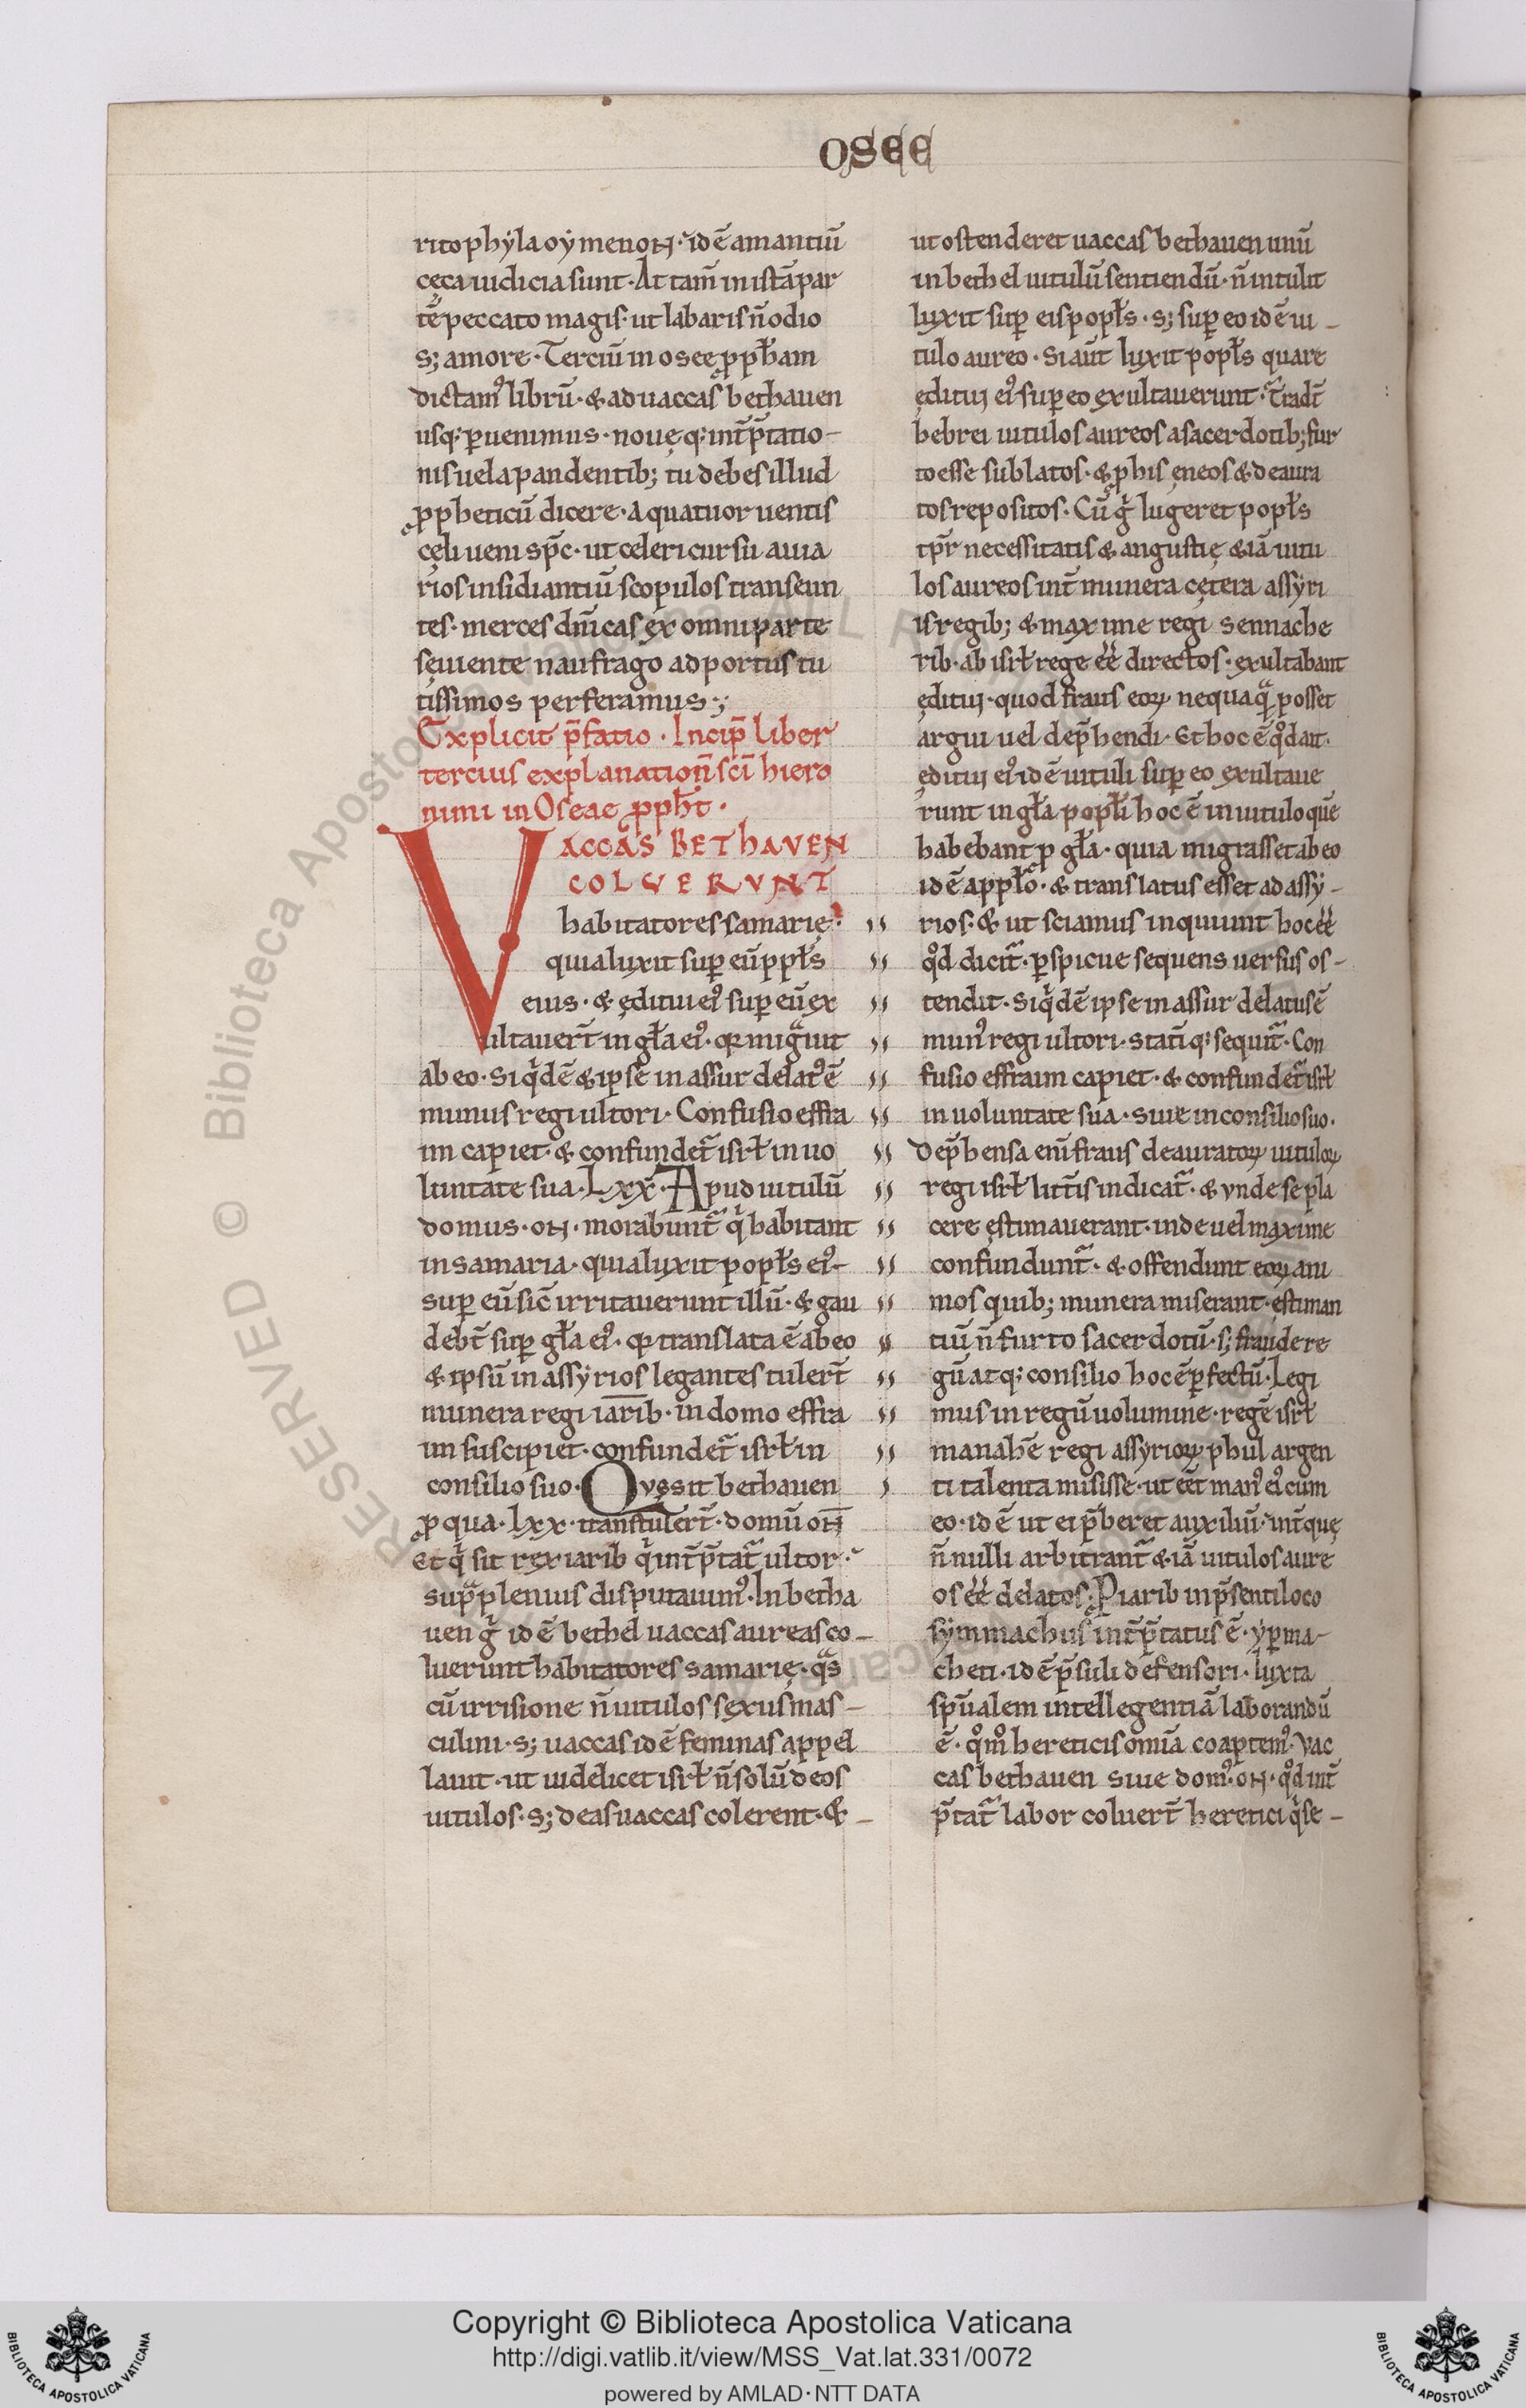 OSEE
ritophẏlaoẏmenoн· id ē amantiū
cęca iudicia sunt· At tam̄ in istā par
tē peccato magis· ut labaris n̄ odio
s; amore· Terciū in osee ꝓph̄am
dictam᾽ librū· & ad uaccas bethauen
usq; ꝑuenimus· nouęq; int̄p̄tatio-
nis uela pandentib; tu debes illud
ꝓpheticū dicere· a quatuor uentis
cęli ueni sp̄c· ut celeri cursu auia
rios insidiantiū scopulos transeun
tes· merces dn̄icas ex omni parte
sęuiente naufrago ad portus tu
tissimos perferamus;
Explicit p̄fatio· Incip̄ liber
tercius explanation̄ sc̄i hiero
nimi in Oseae ꝓph̄t·
VACCAS BEThAVEN
COLVERVNT
habitatores samarię·
quia luxit suꝑ eū ppl̄s
eius· & ęditui ei᾽ suꝑ eū ex
ultauer̄t in gl̄a ei᾽· qꝛ migᵃuit
ab eo· Siqⁱdē & ipse in assur delat᾽ ē
munus regi ultori· Confusio effra
im capiet· & confundet᷑ isrł in uo
luntate sua· Lxx· Apud uitulū
domus· oн· morabunt᷑ qⁱ habitant
in samaria· quia luxit popl̄s ei᾽-
suꝑ eū sic̄ irritauerunt illū· & gau
debt̄ suꝑ gl̄a ei᾽· qꝛ translata ē ab eo
& ipsū in assẏrios legantes tuler̄t
munera regi iarib· in domo effra
im suscipiet· confundet᷑ isrł in
consilio suo· Quę sit bethauen
ꝓ qua· lxx· transtuler̄t· domū oн
Et qⁱ sit rex iarib qⁱ int̄p̄tat᷑ ultor·
supᵃ plenius disputauim᾽· In betha
uen gͥ id ē bethel uaccas aureas co-
luerunt habitatores samarię· qᵃs
cū irrisione n̄ uitulos sexus mas-
culini· s; uaccas id ē feminas appel
lauit· ut uidelicet isrł n̄ solū deos
uitulos· s; deas uaccas colerent· &-
ut ostenderet uaccas bethauen unū
in bethel uitulū sentiendū· n̄ intulit
luxit suꝑ eis popl̄s· s; suꝑ eo id ē ui-
tulo aureo· Si aūt luxit popl̄s quare
ęditui ei᾽ suꝑ eo exultauerunt· Tradt̄
hebrei uitulos aureos a sacerdotib; fur
to esse sublatos· & ꝓ his ęneos & deaura
tos repositos· Cū gͥ lugeret popl̄s
tp̄r necessitatis & angustię & iā uitu
los aureos int̄ munera cętera assẏri
is regib; & maxime regi sennache
rib· ab isrł rege ēē directos· exultabant
ęditui· quod fraus eoꝝ nequaqᵃ posset
argui uel dep̄hendi· Et hoc ē qͦd ait·
ęditui ei᾽ id ē uituli suꝑ eo exultaue
runt in gl̄a popl̄i hoc ē in uitulo quē
habebant ꝓ gl̄a· quia migrasset ab eo
id ē a ppl̄o· & translatus esset ad assẏ-
rios· & ut sciamus inquiunt hoc ēē
qͦd dicit᷑· ꝑspicue sequens uersus os-
tendit· Siqⁱdē ipse in assur delatus ē
mun᾽ regi ultori· Statīq; sequit᷑· Con
fusio effraim capiet· & confundet᷑ isrł
in uoluntate sua· siue in consilio suo·
Dep̄hensa enī fraus deauratoꝝ uituloꝝ
regi isrł litt̄is indicat᷑· & vnde se pla
cere ęstimauerant· inde uel maxime
confundunt᷑· & offendunt eoꝝ ani
mos quib; munera miserant· ęstiman
tiū n̄ furto sacerdotū· s; fraude re
gū atq; consilio hoc ē ꝑfectū· Legi
mus in regū uolumine· regē isrł
manahē regi assyrioꝝ phul argen
ti talenta misisse· ut eēt man᾽ ei᾽ cum
eo· id ē ut ei p̄beret auxiliū· int̄ quę
n̄ nulli arbitrant᷑ & iā uitulos aure
os ēē delatos· Piarib in p̄senti loco
sẏmmachus int̄p̄tatus ē· ẏꝑma-
cheti· id ē p̄suli defensori· Iuxta
sp̄ualem intellegentiā laborandū
ē· qͦm͂ hereticis om̄ia coaptem᾽· Vac
cas bethauen siue dom᾽· oн· qͦd int̄
p̄tat᷑ labor coluer̄t heretici qⁱ se-
Copyright © Biblioteca Apostolica Vaticana
http://digi.vatlib.it/view/MSS_Vat.lat.331/0072
powered by AMLAD·NTT DATA
BIBLIOTECA APOSTOLICA VATICANA
BIBLIOTECA APOSTOLICA VATICANA